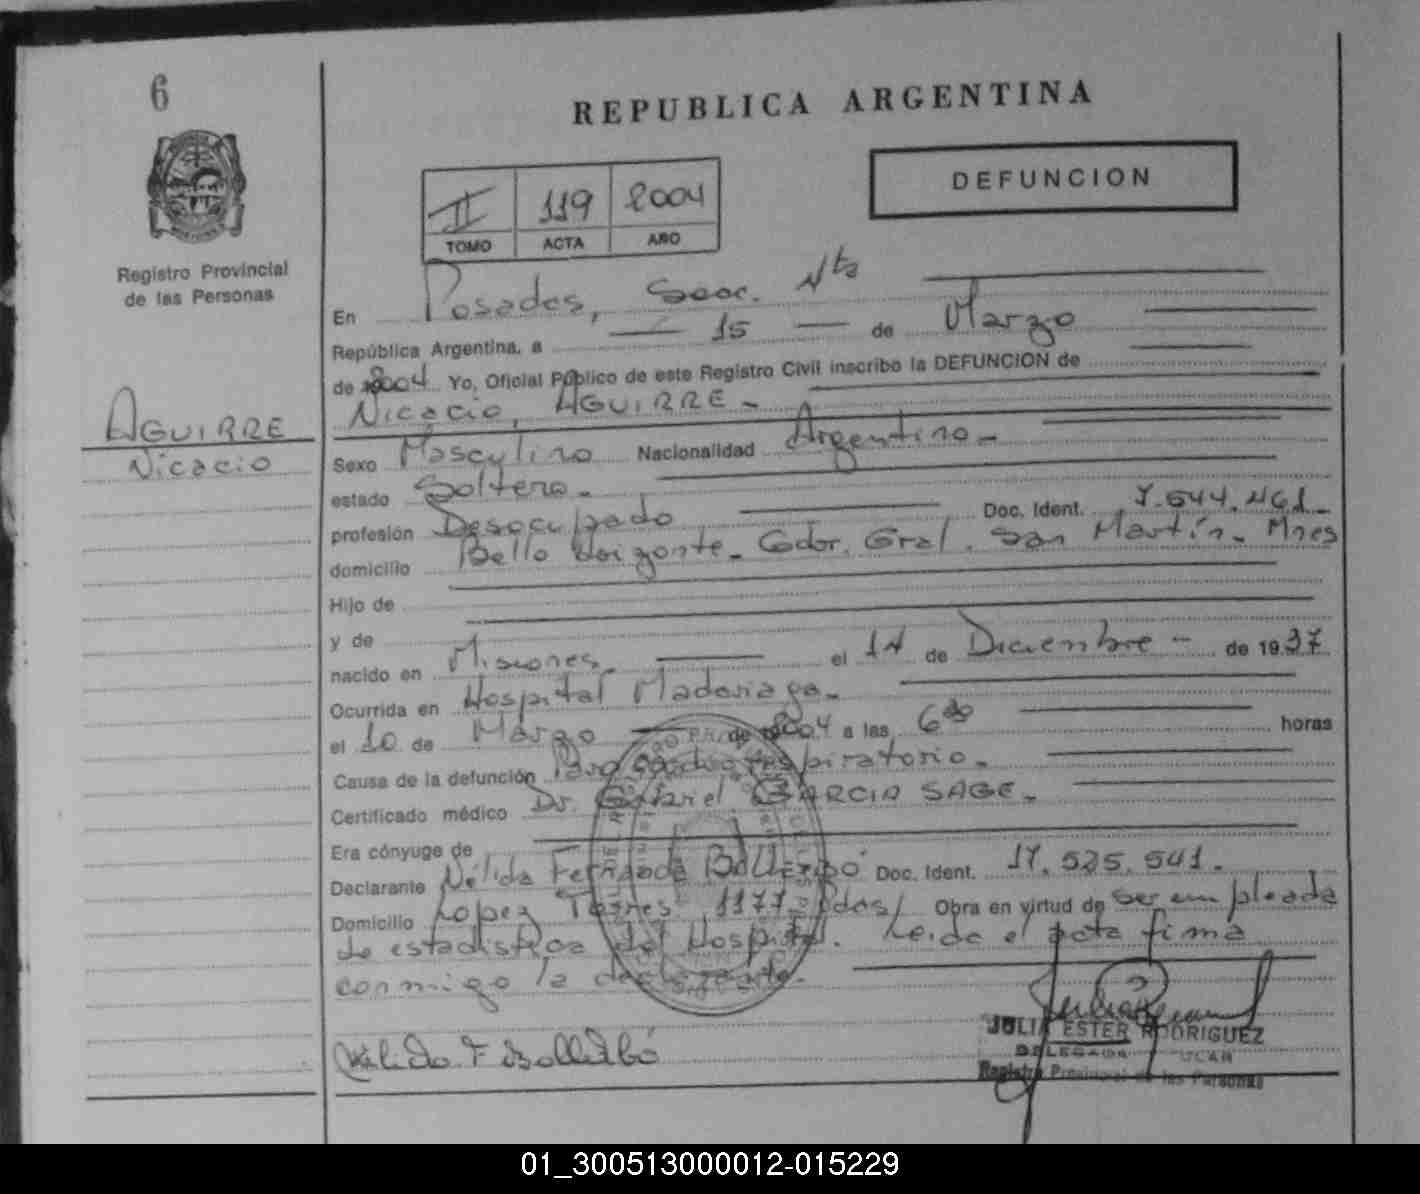 6
REPUBLICA ARGENTINA
DEFUNCION
II 119 2004
TOMO ACTA AÑO
Registro Provincial
de las Personas
AGUIRRE
Nicacio
En Posadas, Secc. Nta
República Argentina, a 15 de Marzo
de 2004 Yo, Oficial Público de este Registro Civil inscribo la DEFUNCION de
Nicacio, AGUIRRE -
Sexo Masculino Nacionalidad Argentino -
estado Soltero -
profesión Desocupado Doc. Ident. 7.544.461 -
domicilio Bello Horizonte - Gdor. Gral. San Martín - Mnes
Hijo de
y de
nacido en Misiones el 14 de Diciembre - de 1937
Ocurrida en Hospital Madariaga -
el 10 de Marzo de 2004 a las 6 horas
Causa de la defunción Paro cardiorrespiratorio -
Certificado médico Dr. Gabriel GARCIA SAGE -
Era cónyuge de
Declarante Nélida Fernanda Doc. Ident. 17.525.541 -
Domicilio Lopez Torres 1177 - Pdas/ Obra en virtud de ser empleada
de estadistica del Hospital. Leida el acta firma
conmigo la declarante -
JULIA ESTER RODRIGUEZ
DELEGADA
Registro Provincial de las Personas
01_300513000012-015229